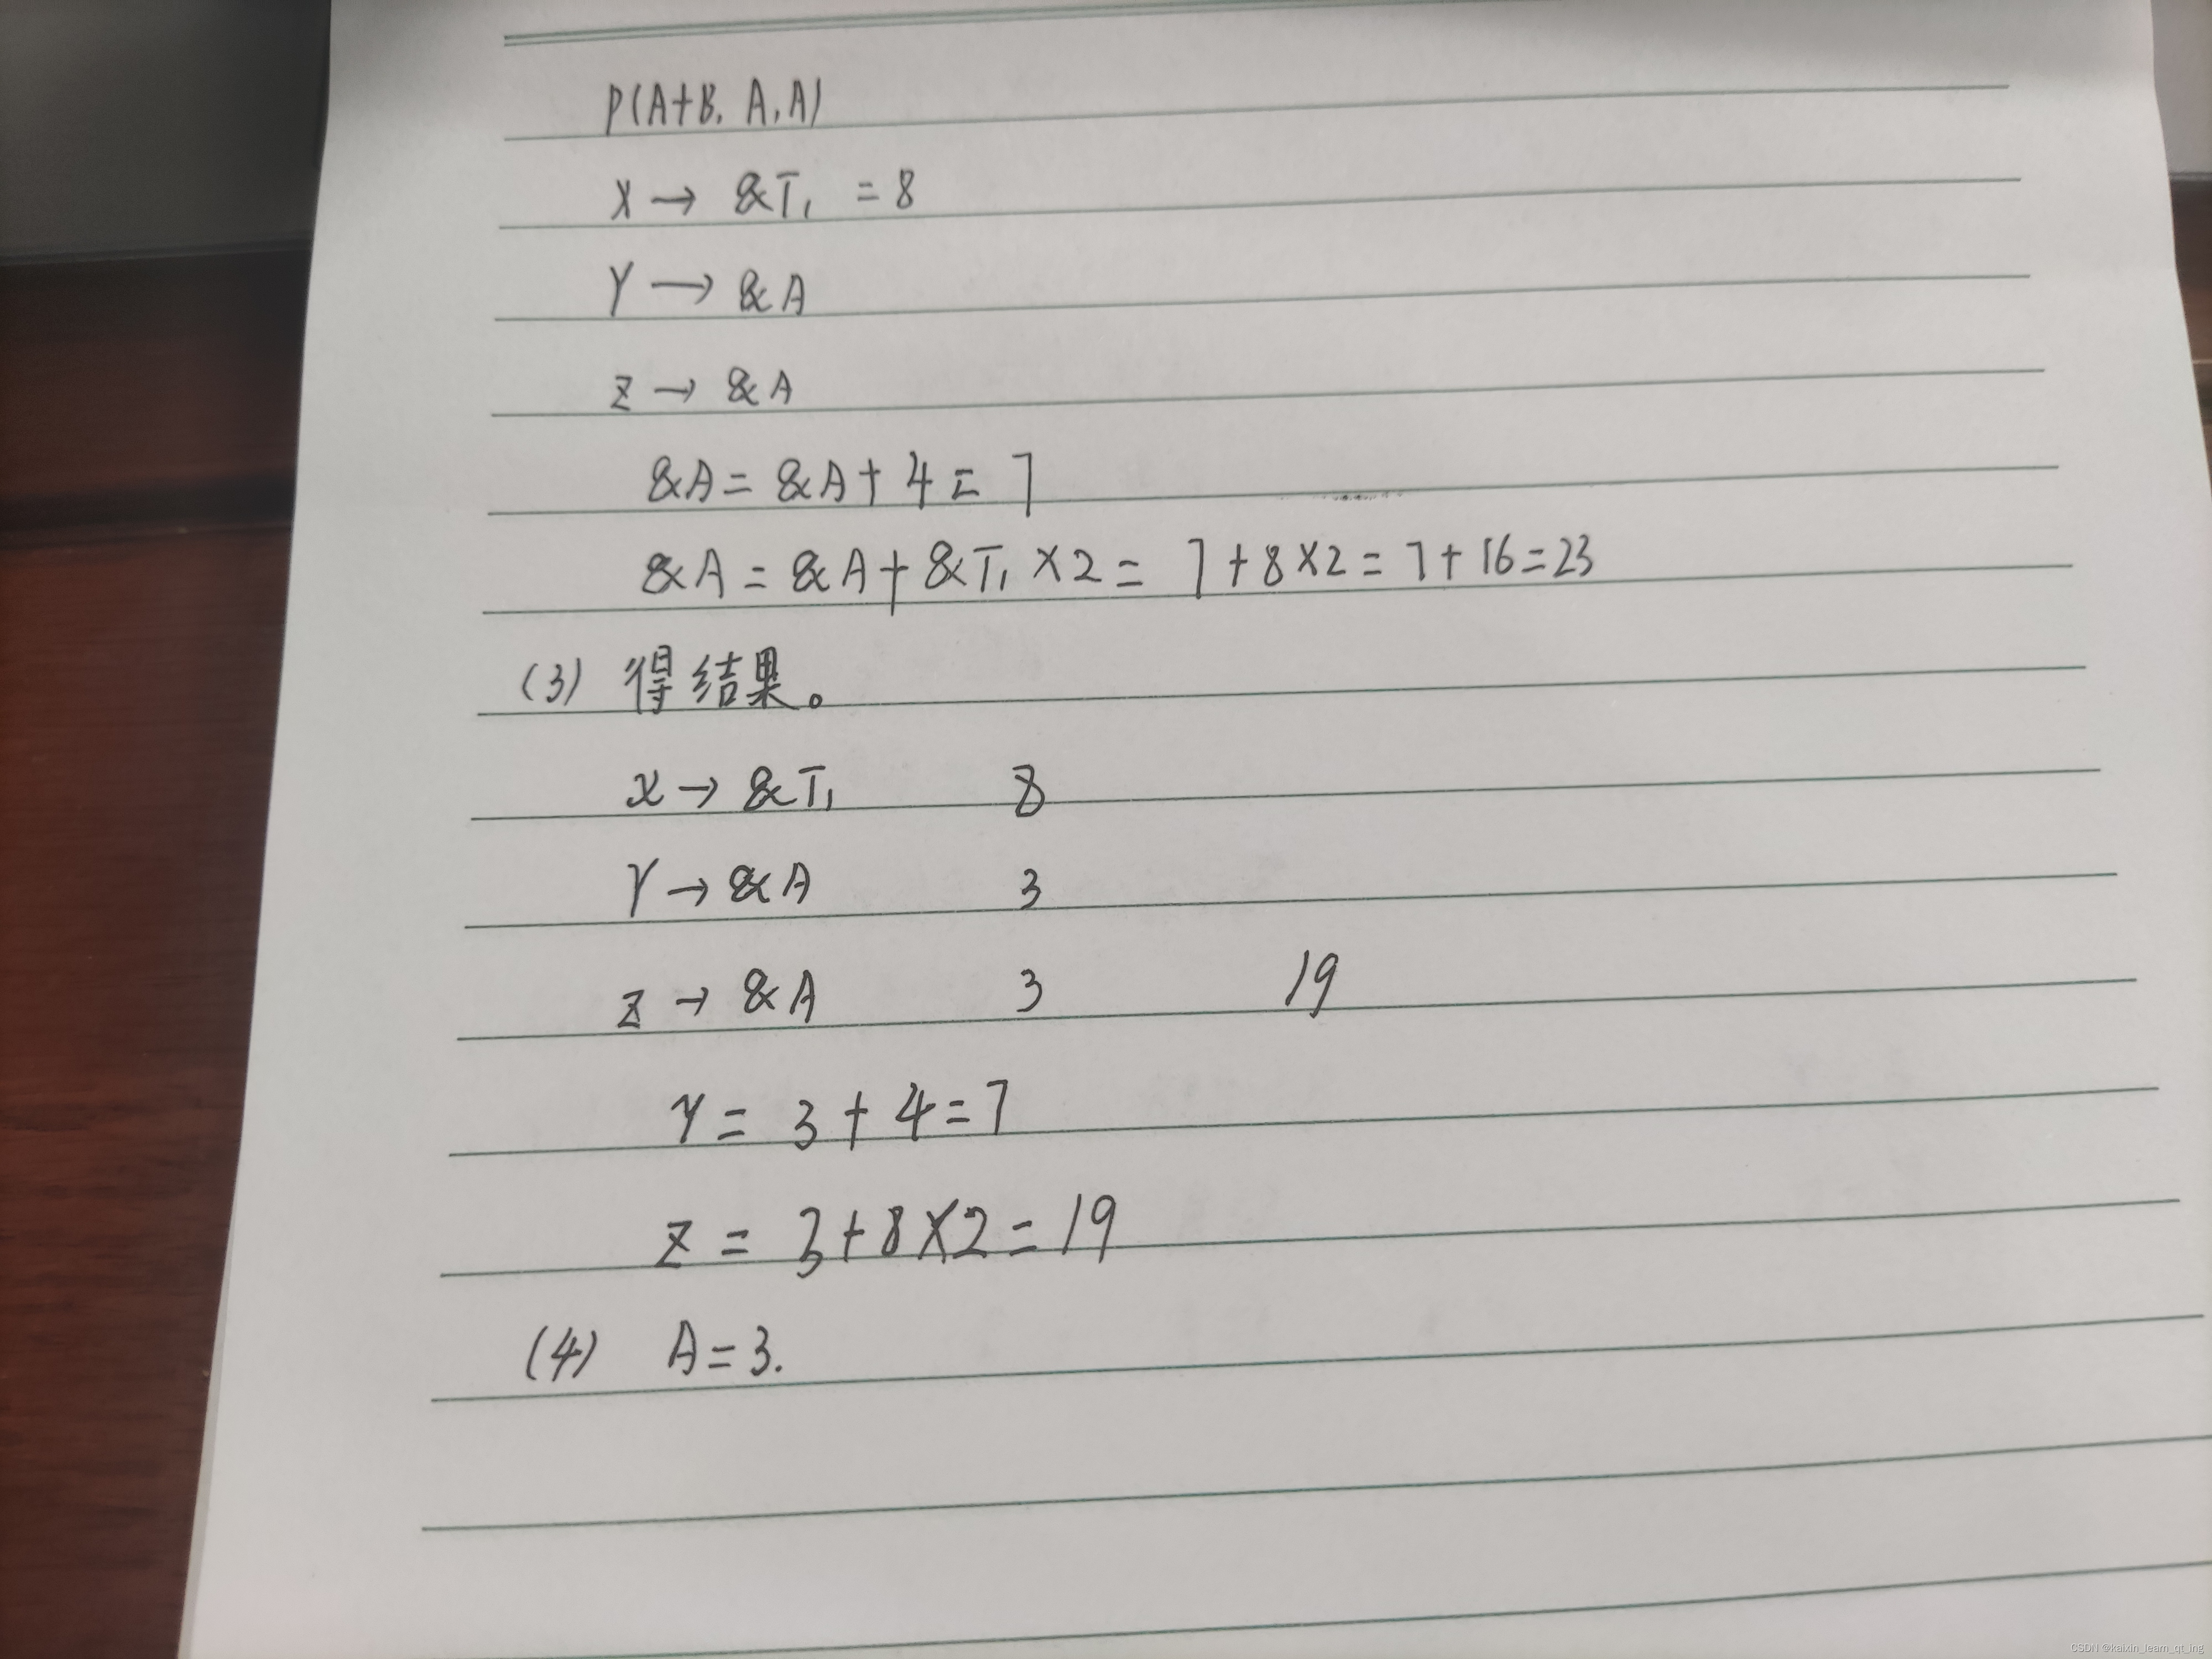 P(A+B, A, A)
X → &T₁ = 8
Y → &A
Z → &A
&A = &A + 4 = 7
&A = &A + &T₁ × 2 = 7 + 8 × 2 = 7 + 16 = 23
(3) 得结果。
X → &T₁ 8
Y → &A 3
Z → &A 3 19
Y = 3 + 4 = 7
Z = 3 + 8 × 2 = 19
(4) A = 3.
CSDN @kaixin_learn_qt_ing